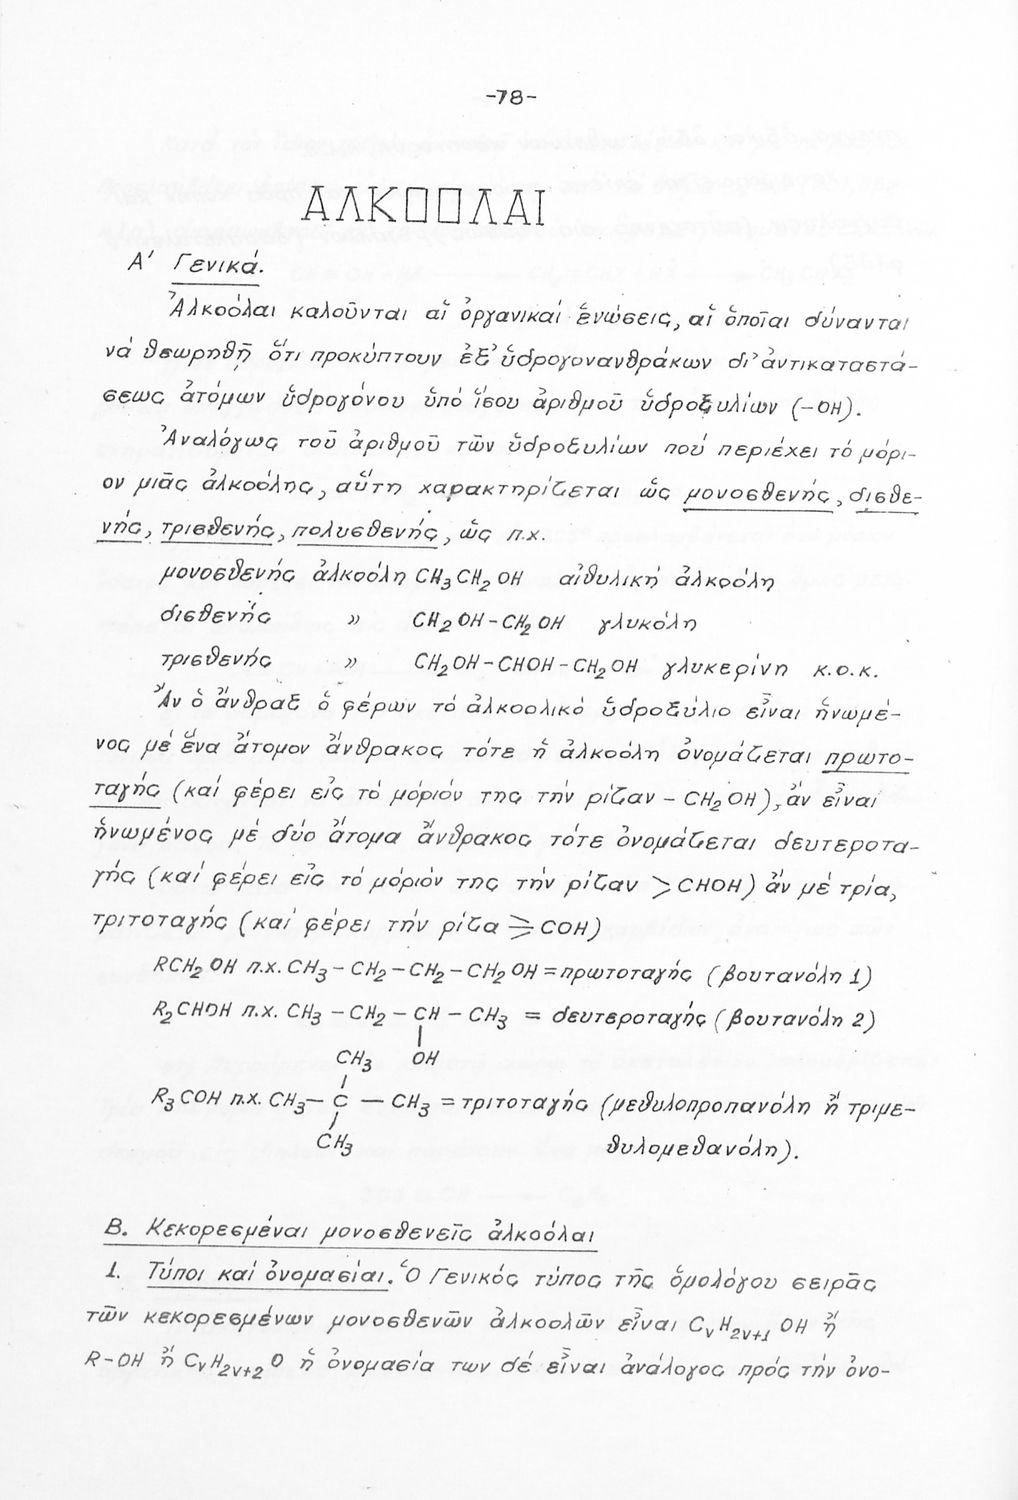 -78-
ΑΛΚΟΟΛΑΙ
Α' Γενικά.
Ἀλκοόλαι καλοῦνται αἱ ὀργανικαί ἑνώσεις, αἱ ὁποῖαι δύνανται
νά θεωρηθῇ ὅτι προκύπτουν ἐξ' ὑδρογονανθράκων δι' ἀντικαταστά-
σεως ἀτόμων ὑδρογόνου ὑπό ἴσου ἀριθμοῦ ὑδροξυλίων (-ΟΗ).
Ἀναλόγως τοῦ ἀριθμοῦ τῶν ὑδροξυλίων πού περιέχει τό μόρι-
ον μιᾶς ἀλκοόλης, αὕτη χαρακτηρίζεται ὡς μονοσθενής, δισθε-
νής, τρισθενής, πολυσθενής, ὡς π.χ.
μονοσθενής ἀλκοόλη CH₃CH₂OH αἰθυλική ἀλκοόλη
δισθενής " CH₂OH-CH₂OH γλυκόλη
τρισθενής " CH₂OH-CHOH-CH₂OH γλυκερίνη κ.ο.κ.
Ἄν ὁ ἄνθραξ ὁ φέρων τό ἀλκοολικό ὑδροξύλιο εἶναι ἡνωμέ-
νος μέ ἕνα ἄτομον ἄνθρακος τότε ἡ ἀλκοόλη ὀνομάζεται πρωτο-
ταγής (καί φέρει εἰς τό μόριόν της τήν ρίζαν - CH₂OH), ἄν εἶναι
ἡνωμένος μέ δύο ἄτομα ἄνθρακος τότε ὀνομάζεται δευτεροτα-
γής (καί φέρει εἰς τό μόριόν της τήν ρίζαν >CHOH) ἄν μέ τρία,
τριτοταγής (καί φέρει τήν ρίζα ⩾COH)
RCH₂OH π.χ. CH₃-CH₂-CH₂-CH₂OH = πρωτοταγής (βουτανόλη 1)
R₂CHOH π.χ. CH₃-CH₂-CH-CH₃ = δευτεροταγής (βουτανόλη 2)
CH₃ OH
R₃COH π.χ. CH₃-C-CH₃ = τριτοταγής (μεθυλοπροπανόλη ἤ τριμε-
CH₃ θυλομεθανόλη).
Β. Κεκορεσμέναι μονοσθενεῖς ἀλκοόλαι
1. Τύποι καί ὀνομασίαι. Ὁ Γενικός τύπος τῆς ὁμολόγου σειρᾶς
τῶν κεκορεσμένων μονοσθενῶν ἀλκοολῶν εἶναι CᵥH₂ᵥ₊₁OH ἤ
R-OH ἤ CᵥH₂ᵥ₊₂O ἡ ὀνομασία των δέ εἶναι ἀνάλογος πρός τήν ὀνο-